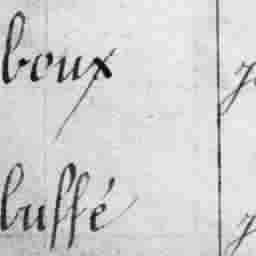 boux
buffé